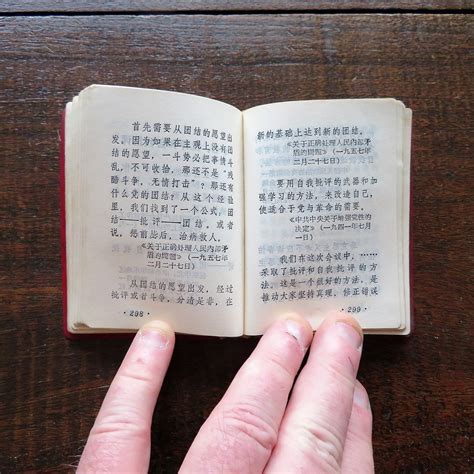 首先需要从团结的愿望出
发。因为如果在主观上没有团结
的愿望，一斗势必把事情斗
乱，不可收拾，那还不是“残
酷斗争，无情打击”？那还有
什么党的团结？从这个经验
里，我们找到了一个公式：团
结——批评——团结。或者
说，惩前毖后，治病救人。
《关于正确处理人民内部矛
盾的问题》（一九五七年
二月二十七日）
从团结的愿望出发，经过
批评或者斗争，分清是非，在
·298·
新的基础上达到新的团结。
《关于正确处理人民内部矛
盾的问题》（一九五七年
二月二十七日）
要用自我批评的武器和加
强学习的方法，来改造自己，
使适合于党与革命的需要。
《中共中央关于增强党性的
决定》（一九四一年七月
一日）
我们在这次会议中，……
采取了批评和自我批评的方
法。这是一个很好的方法，是
推动大家坚持真理、修正错误
·299·